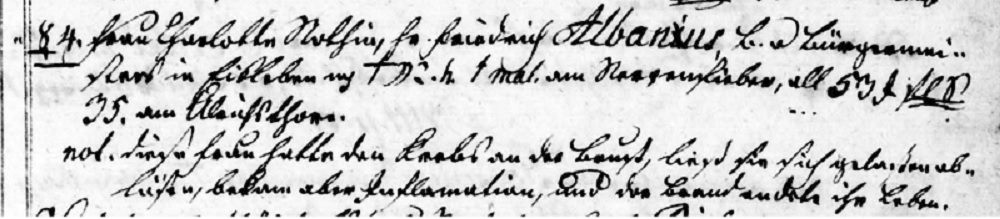 84. Frau Charlotte Rothin, Hr. Friedrich Albanius, B. u Bürgermei-
sters in Eisleben † d. 1 Mai. am Nervenfieber, alt 53 J
35. am Ulrichsthore.
not. diese Frau hatte den Krebs an der Brust, ließ sie sich gelassen ab-
lösen, bekam aber Inflamation, und der Brand endete ihr Leben.